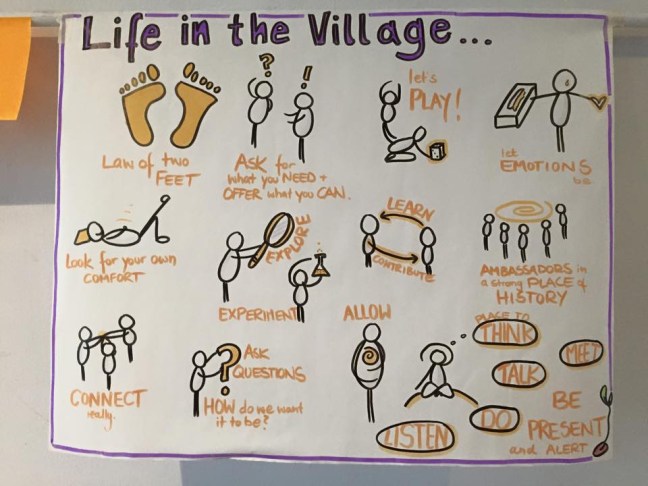 Life in the Village...
Law of two
FEET
?
!
Ask for
what you NEED +
OFFER what you CAN.
let's
PLAY!
let
EMOTIONS
be
Look for your own
COMFORT
EXPLORE
EXPERIMENT
LEARN
CONTRIBUTE
AMBASSADORS in
a strong PLACE of
HISTORY
CONNECT
really.
?
ASK
QUESTIONS
HOW do we want
it to be?
ALLOW
PLACE TO
THINK
MEET
TALK
DO
LISTEN
BE
PRESENT
and ALERT